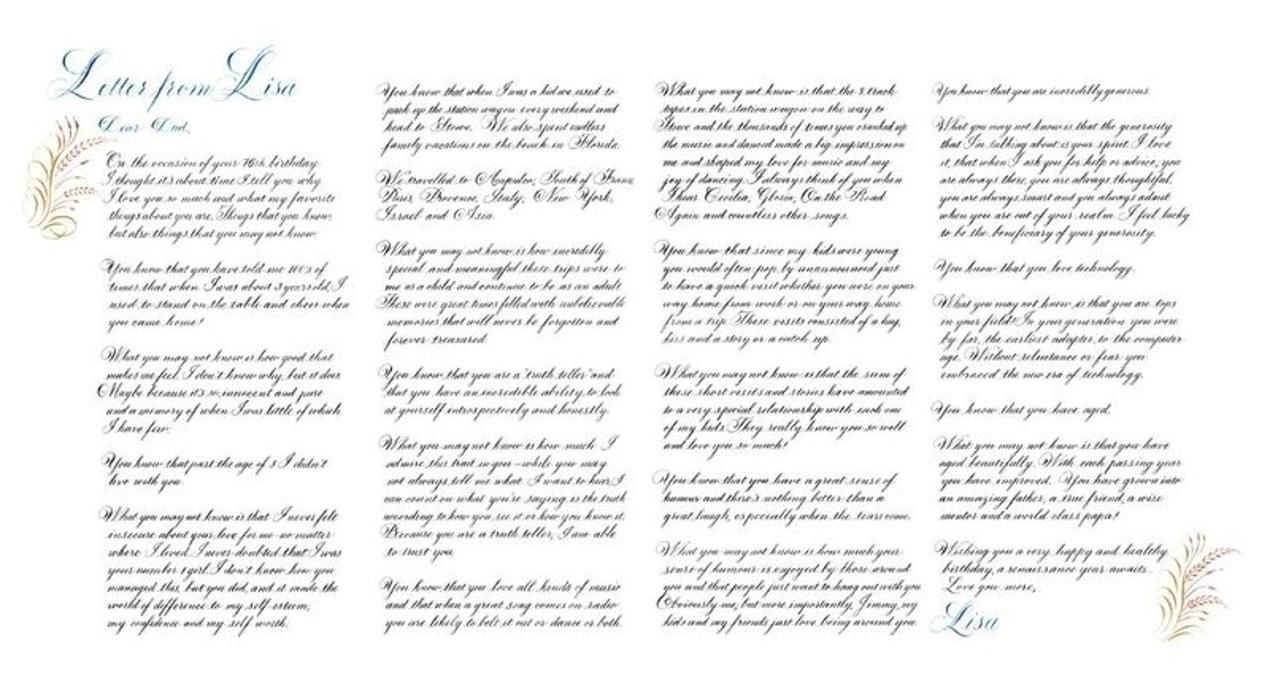 Letter from Lisa
Dear Dad,
On the occasion of your 76th birthday
I thought it's about time I tell you why
I love you so much and what my favorite
things about you are. Things that you know,
but also things that you may not know.
You know that you have told me 100's of
times, that when I was about 3 years old, I
used to stand on the table and cheer when
you came home!
What you may not know is how good that
makes me feel. I don't know why, but it does.
Maybe because it's so innocent and pure
and a memory of when I was little of which
I have few.
You know that past the age of 5 I didn't
live with you.
What you may not know is that I never felt
insecure about your love for me - no matter
where I lived. I never doubted that I was
your number 1 girl. I don't know how you
managed this, but you did, and it made the
world of difference to my self-esteem,
my confidence and my self worth.
You know that when I was a kid we used to
pack up the station wagon every weekend and
head to Stowe. We also spent endless
family vacations on the beach in Florida.
We travelled to Acapulco, South of France
Paris, Provence, Italy, New York,
Israel and Asia.
What you may not know is how incredibly
special and meaningful these trips were to
me as a child and continue to be as an adult.
These were great times filled with unbelievable
memories, that will never be forgotten and
forever treasured.
You know that you are a "truth teller" and
that you have an incredible ability to look
at yourself introspectively and honestly.
What you may not know is how much I
admire this trait in you - while you may
not always tell me what I want to hear, I
can count on what you're saying is the truth
according to how you see it or how you know it.
Because you are a truth teller, I am able
to trust you.
You know that you love all kinds of music
and that when a great song comes on radio
you are likely to belt it out or dance or both.
What you may not know is that the 8 track
tapes in the station wagon on the way to
Stowe and the thousands of times you cranked up
the music and danced made a big impression on
me and shaped my love for music and my
joy of dancing. I always think of you when
I hear Cecilia, Gloria, On the Road
Again and countless other songs.
You know that since my kids were young
you would often pop by unannounced just
to have a quick visit whether you were on your
way home from work or on your way home
from a trip. These visits consisted of a hug,
kiss and a story or a catch up.
What you may not know is that the sum of
these short visits and stories have amounted
to a very special relationship with each one
of my kids. They really know you so well
and love you so much!
You know that you have a great sense of
humour and there's nothing better than a
great laugh, especially when the tears come.
What you may not know is how much your
sense of humour is enjoyed by those around
you and that people just want to hang out with you
Obviously me, but more importantly, Jimmy, my
kids and my friends just love being around you.
You know that you are incredibly generous.
What you may not know is that the generosity
that I'm talking about is your spirit. I love
it, that when I ask you for help or advice, you
are always there, you are always thoughtful,
you are always smart and you always admit
when you are out of your realm. I feel lucky
to be the beneficiary of your generosity.
You know that you love technology.
What you may not know is that you are tops
in your field! In your generation you were
by far, the earliest adapter, to the computer
age. Without reluctance or fear you
embraced the new era of technology.
You know that you have aged.
What you may not know is that you have
aged beautifully. With each passing year
you have improved. You have grown into
an amazing father, a true friend, a wise
mentor and a world-class papa!
Wishing you a very happy and healthy
birthday, a renaissance year awaits.
Love you more,
Lisa